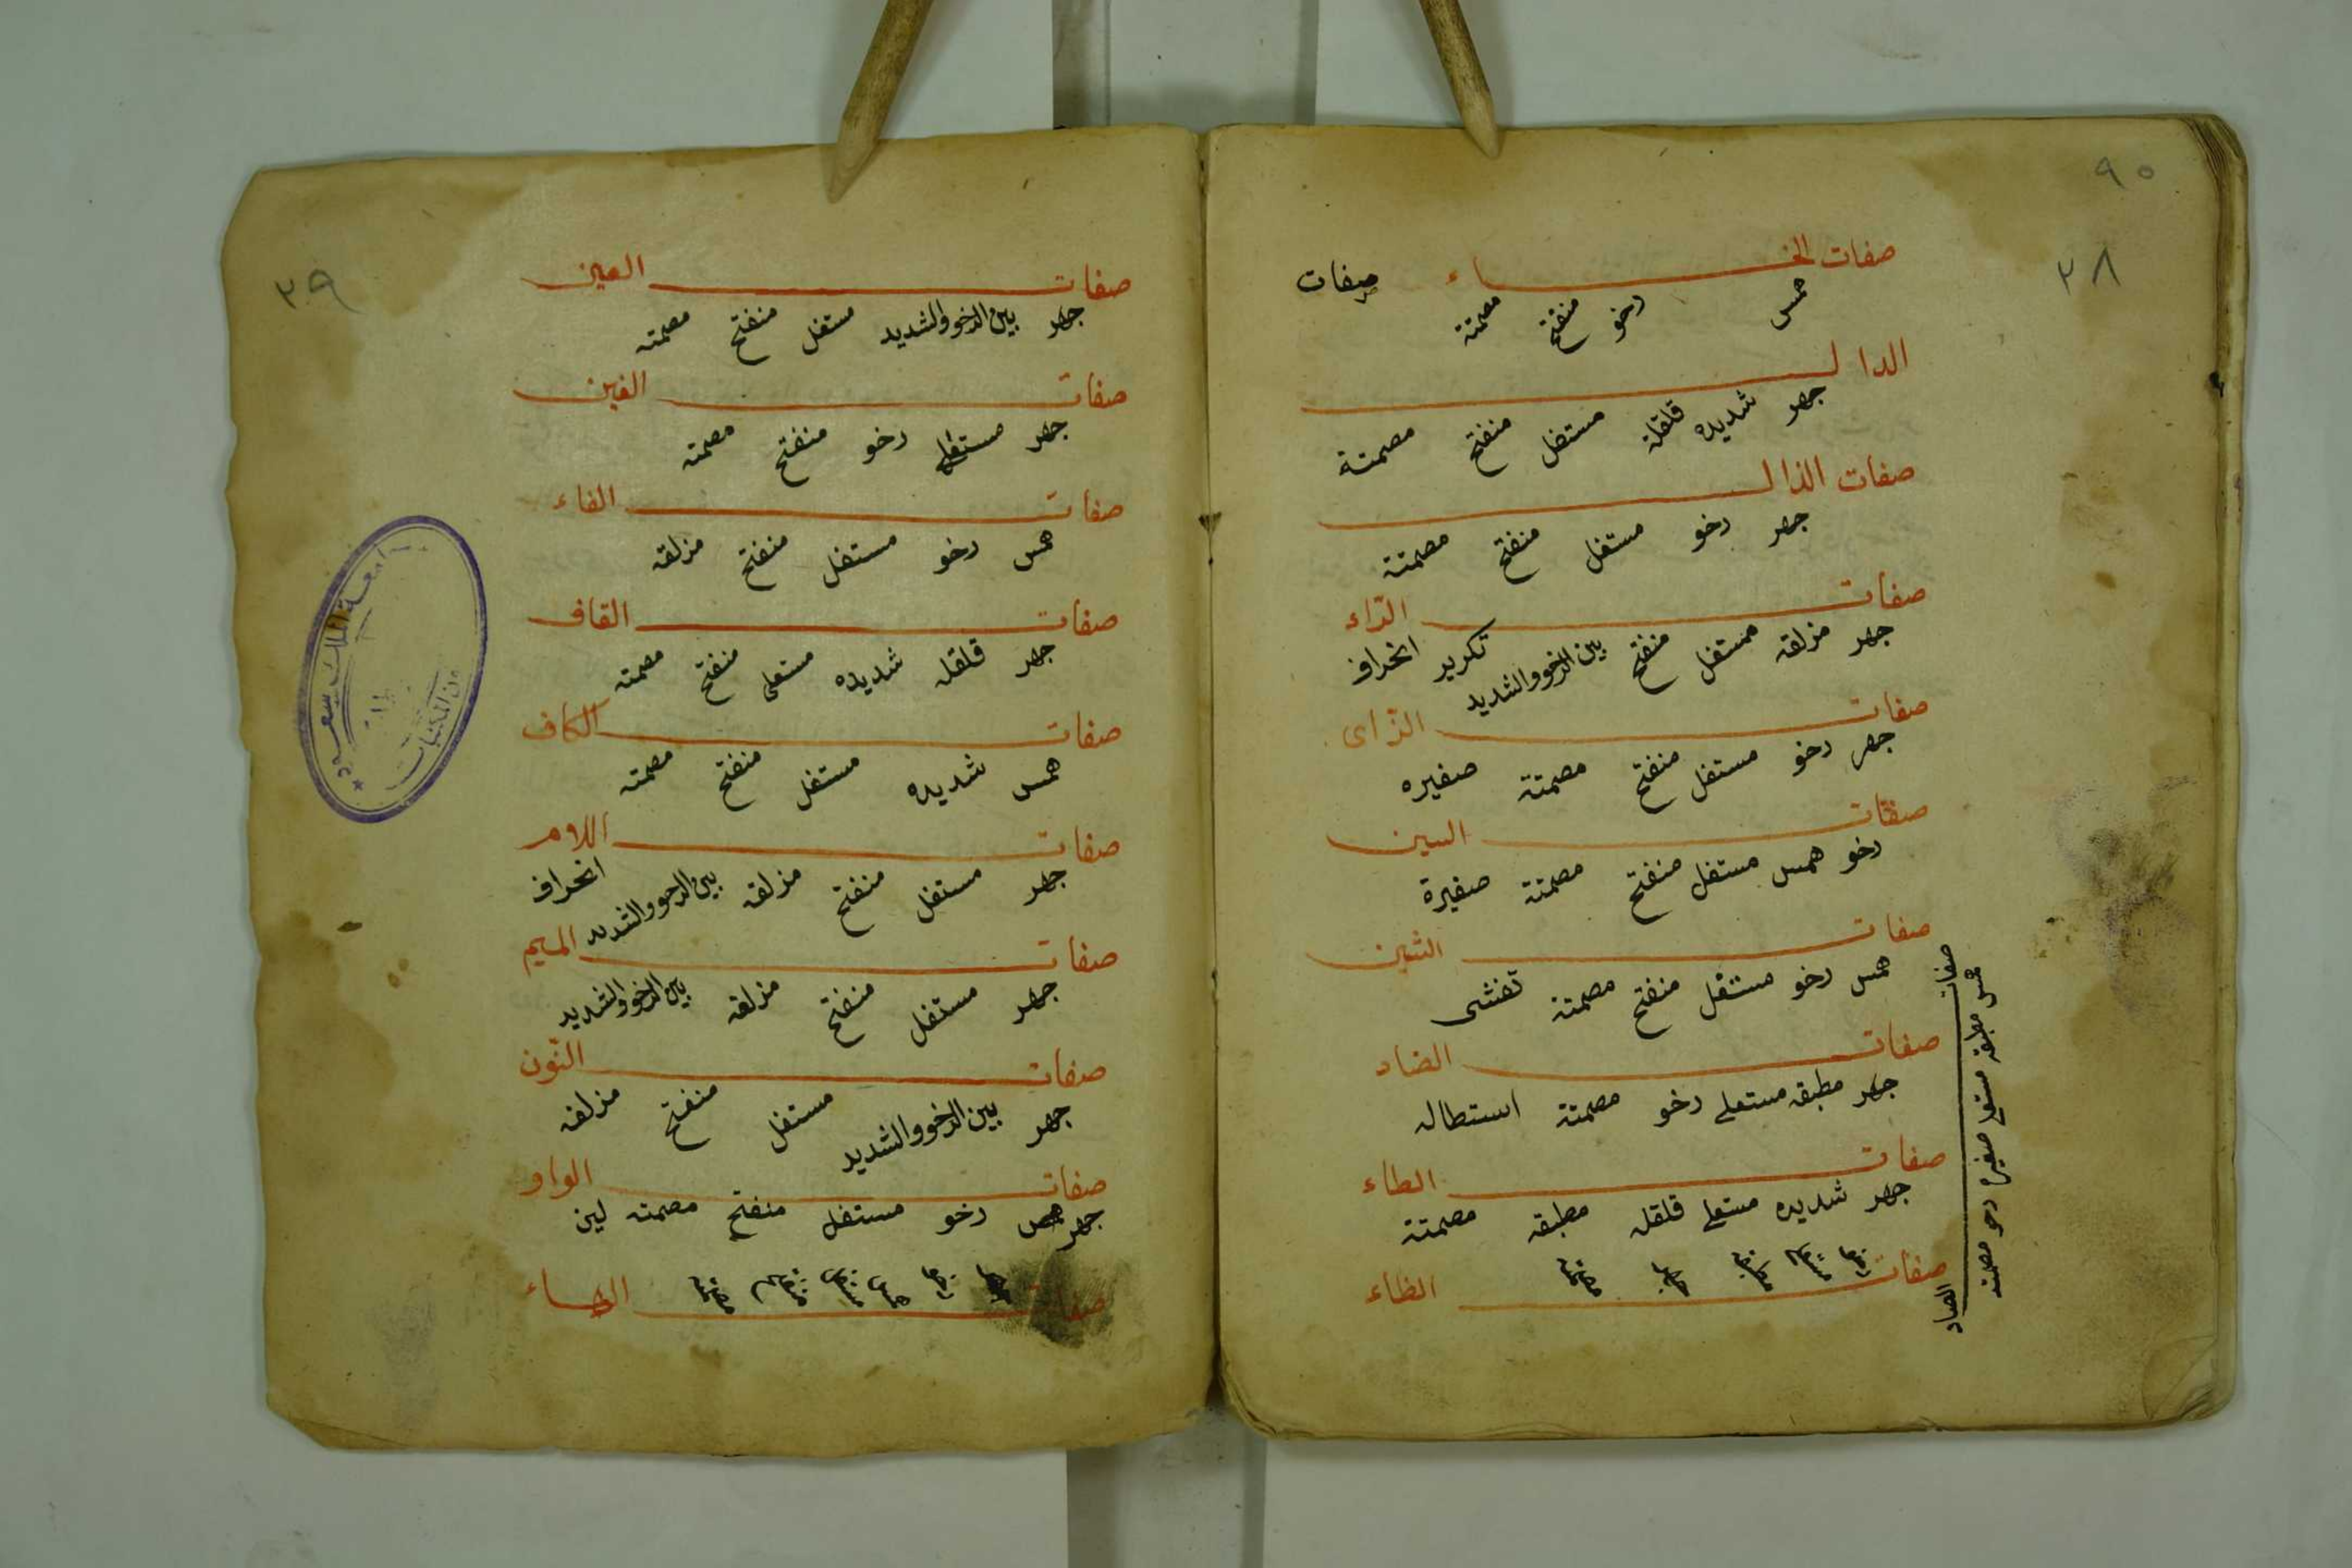 ٩٠
٢٨
صفات الخاء صفات
همس رخو منفتح مصمتة
الدال
جهر شديده قلقلة مستفل منفتح مصمتة
صفات الذال
جهر رخو مستفل منفتح مصمتة
صفات الرّاء
جهر مزلقه مستفل منفتح بين الرخو والشديد تكرير انحراف
صفات الزّاى
جهر رخو مستفل منفتح مصمتة صفيره
صفات السين
رخو همس مستفل منفتح مصمتة صفيرة
صفات الشين
همس رخو مستفل منفتح مصمتة تفشى
صفات الصاد
همس مطبقه مستعلى صفيره رخو مصمته
صفات الضاد
جهر مطبقه مستعلى رخو مصمتة استطاله
صفات الطاء
جهر شديده مستعلى قلقله مطبقه مصمتة
صفات الظاء
٣٩
صفات العين
جهر بين الرخو والشديد مستفل منفتح مصمته
صفات الغين
جهر رخو منفتح مصمته
صفات الفاء
همس رخو مستفل منفتح مزلقه
صفات القاف
جهر قلقله شديده مستعلى منفتح مصمته
صفات الكاف
همس شديده مستفل منفتح مصمته
صفات اللام
جهر مستفل منفتح مزلقه بين الرخو والشديد انحراف
صفات الميم
جهر مستفل منفتح مزلقه بين الرخو والشديد
صفات النّون
جهر بين الرخو والشديد مستفل منفتح مزلقه
صفات الواو
جهر رخو مستفل منفتح مصمته لين
صفات الهاء
جامعة الملك سعود